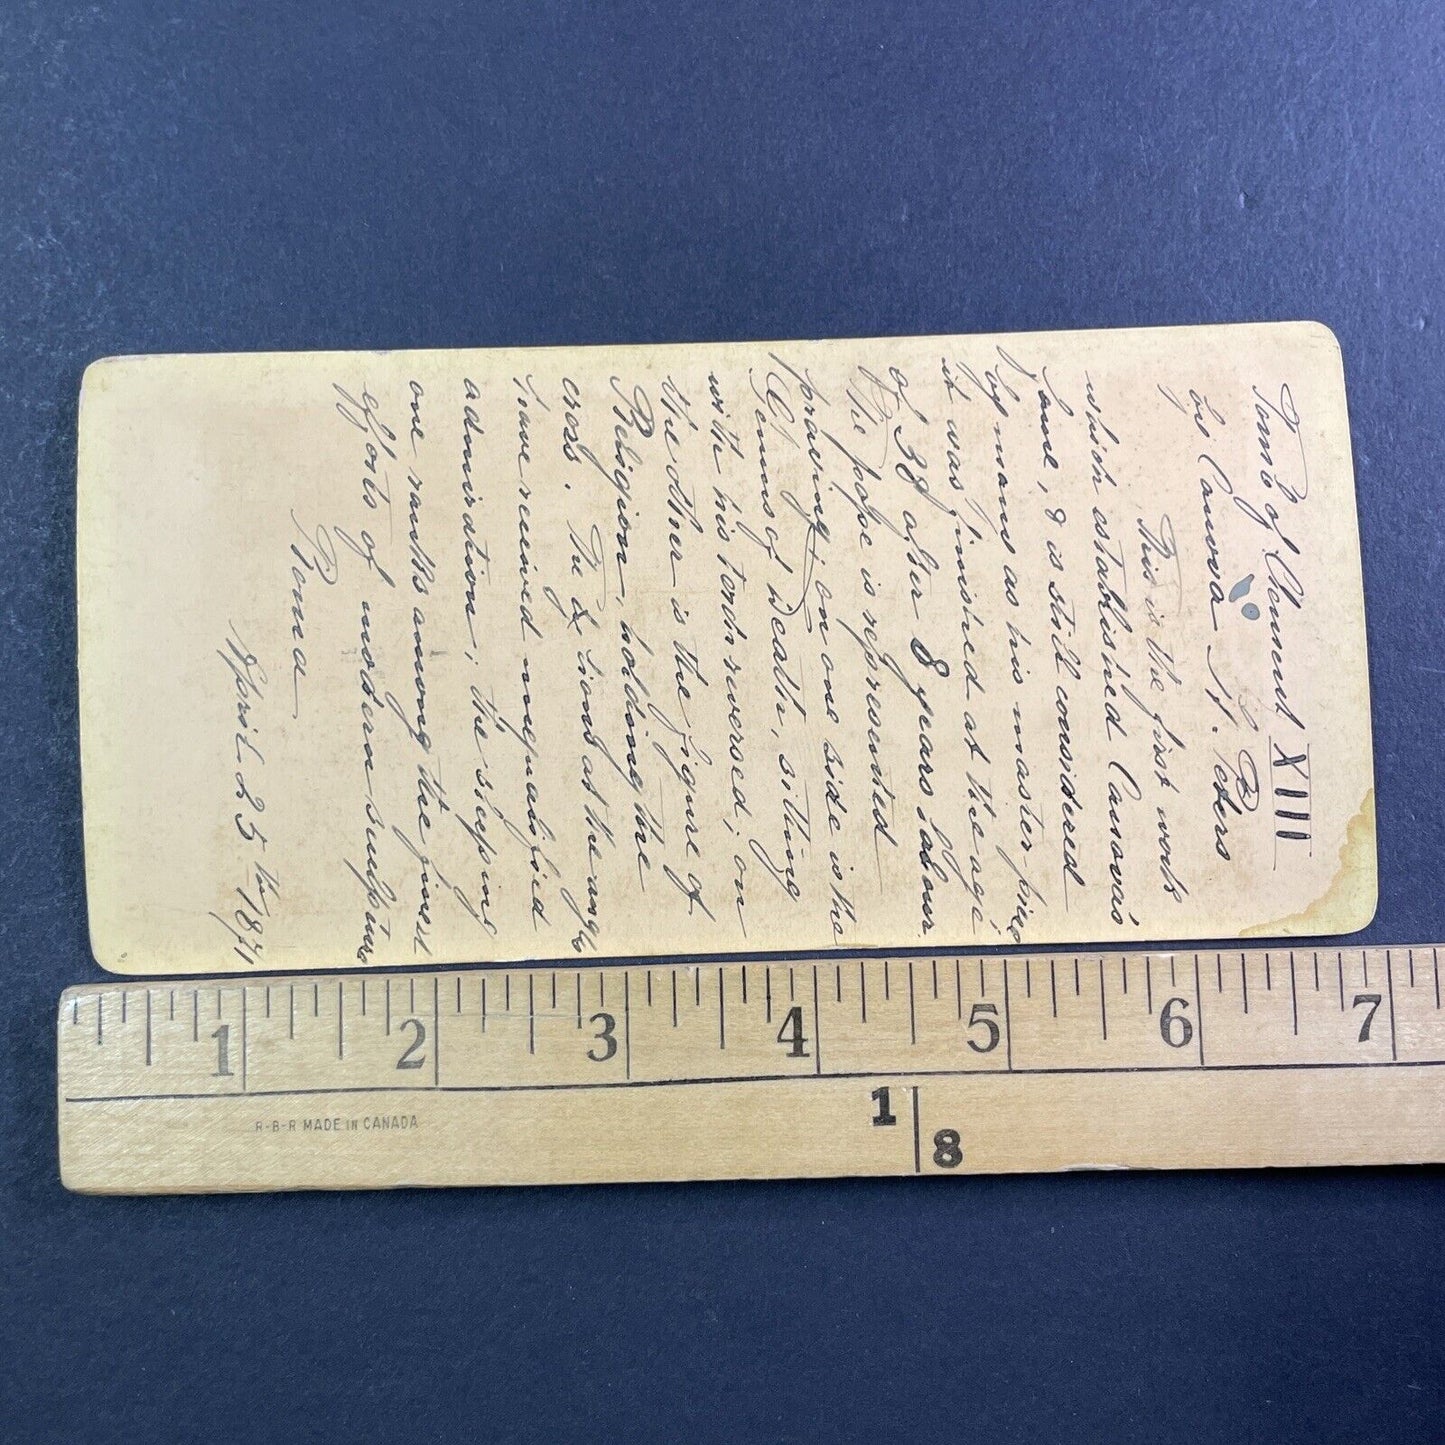 Tomb of Clement XIII
by Canova St. Peters
This is the first work
which established Canova's
fame, & is still considered
by many as his master piece
it was finished at the age
of 38 after 8 years labour.
The pope is represented
praying; on one side is the
Genius of Death, sitting
with his torch reversed; on
the other is the figure of
Religion, holding the
cross. The lions at the angles
have received unqualified
admiration; the sleeping
one ranks among the finest
efforts of modern sculpture
Roma
April 25th 1871
1 2 3 4 5 6 7
1/8
R-B-R MADE IN CANADA